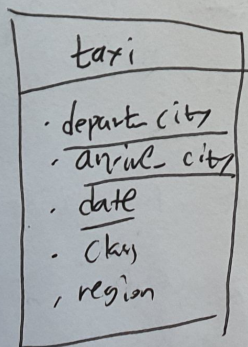 taxi
. depart_city
. arrive_city
. date
. class
, region